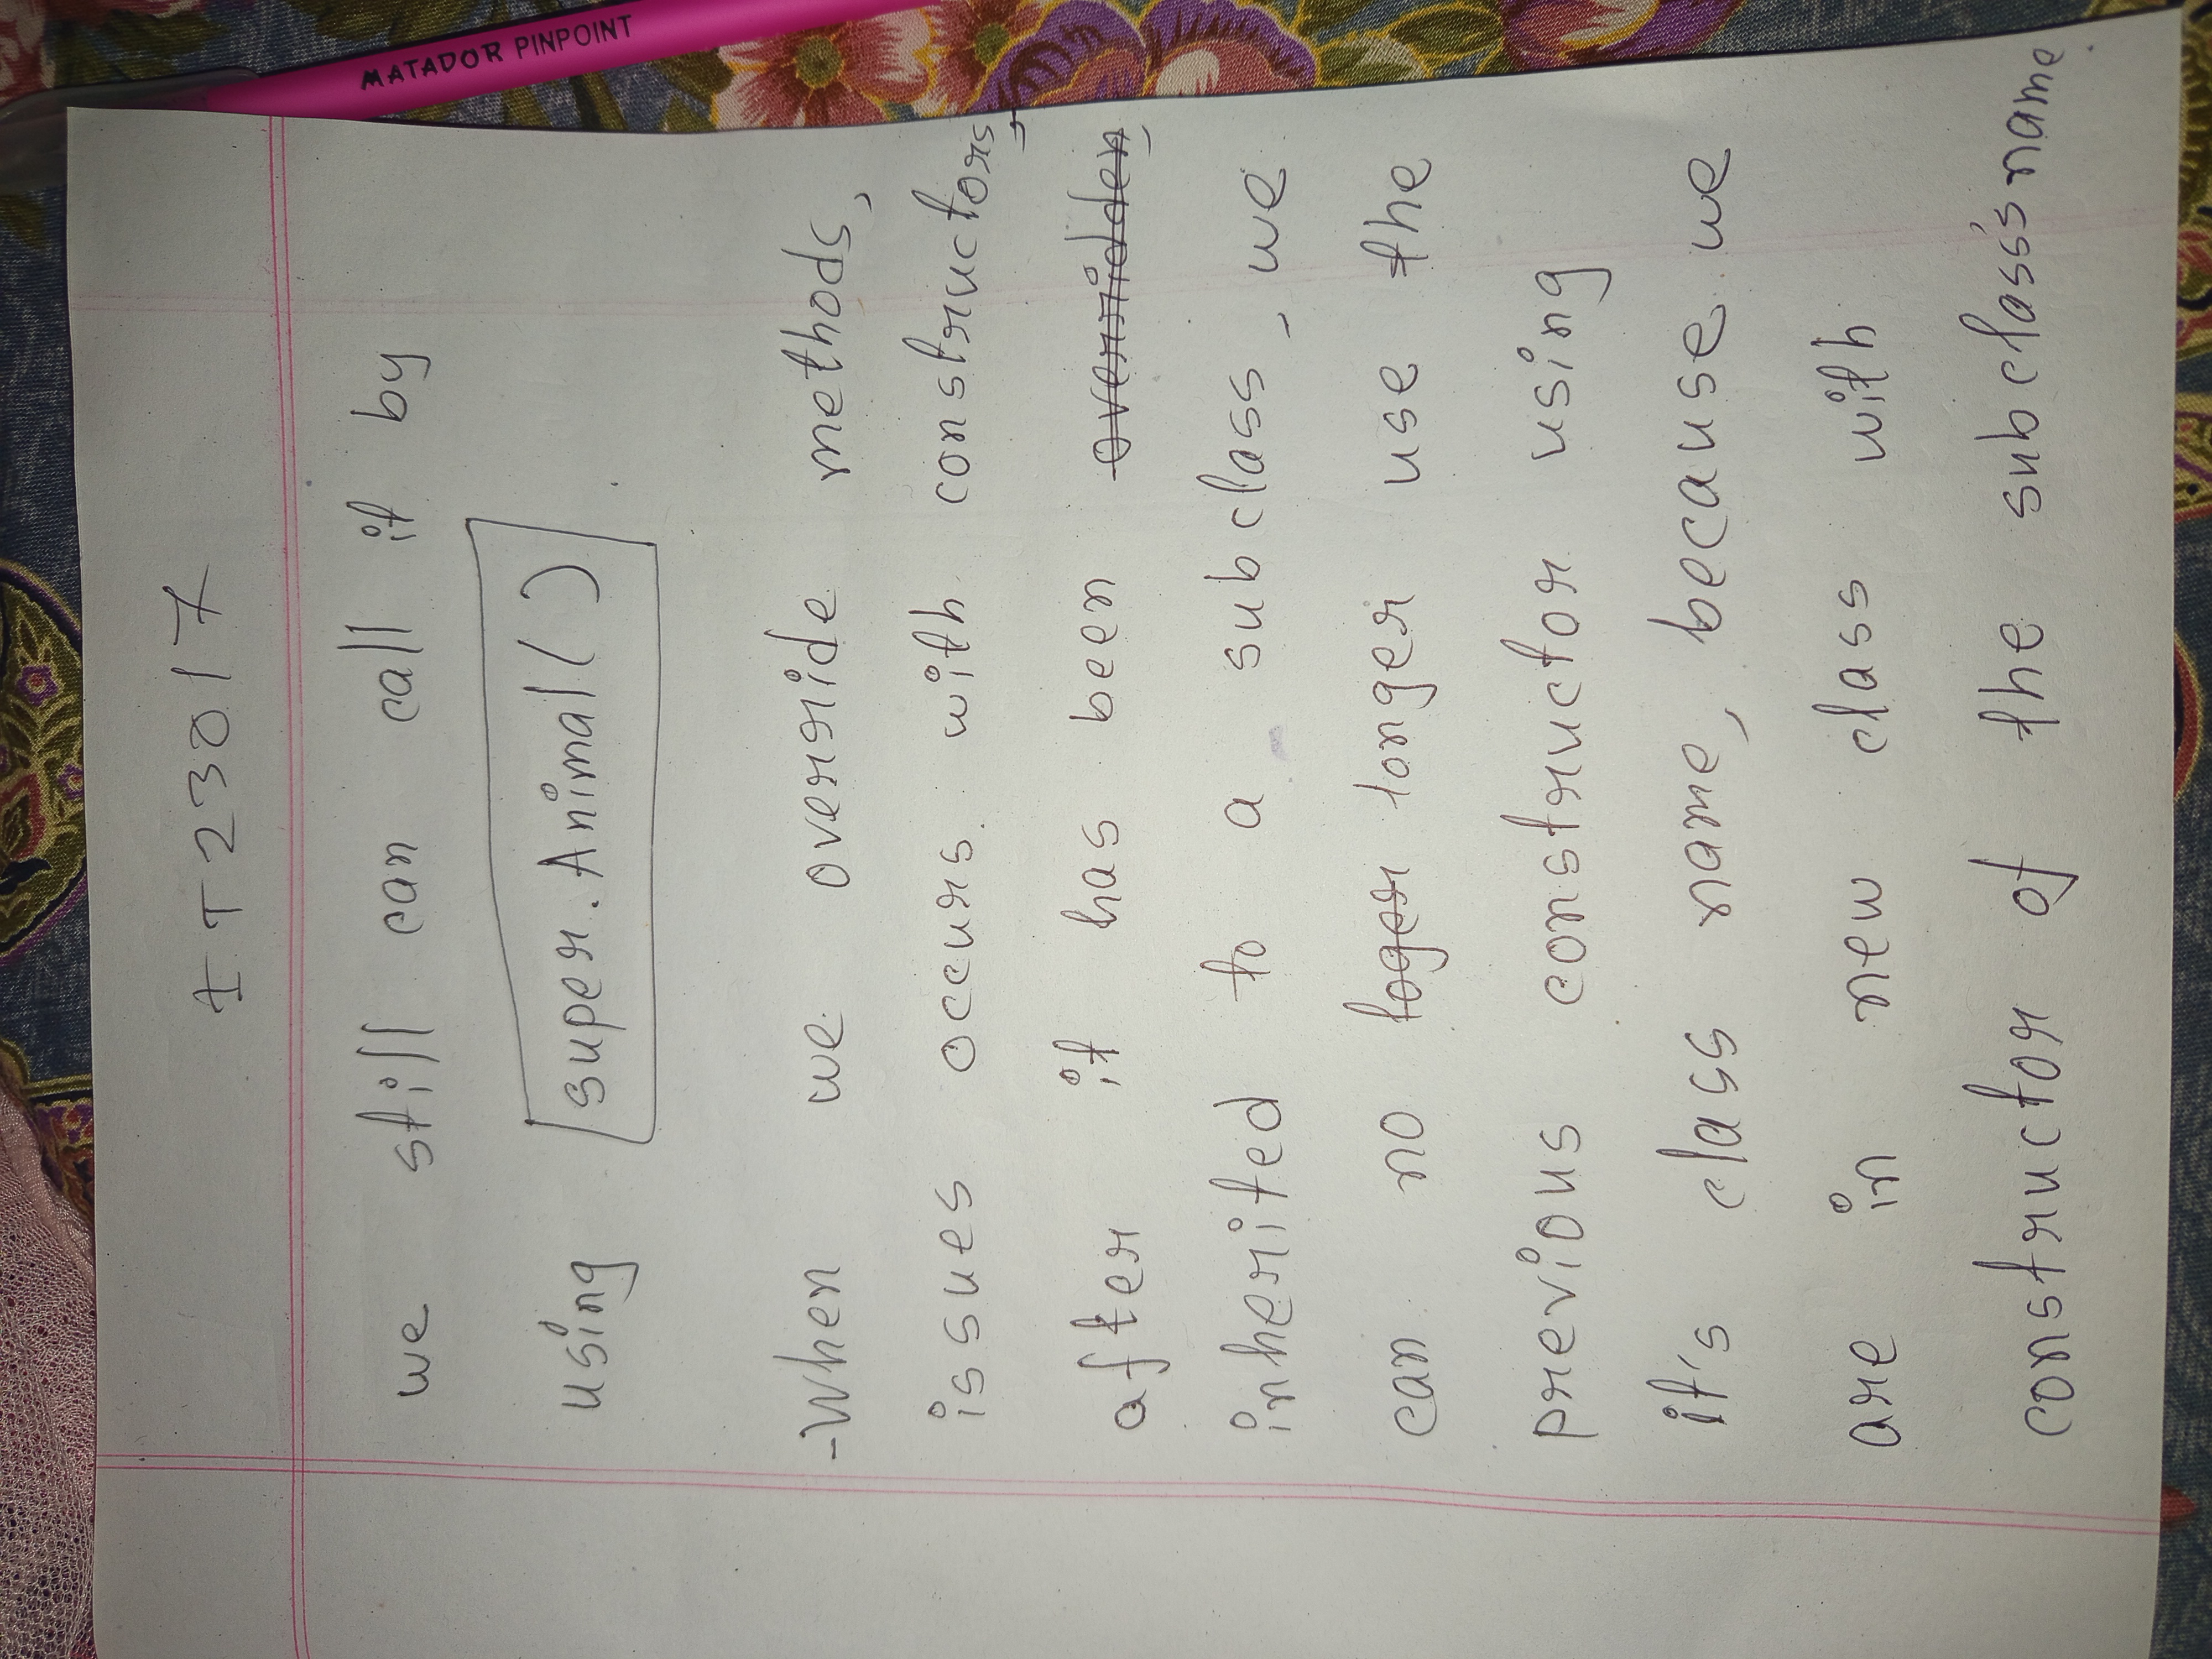 IT23017
we still can call it by
using super.Animal( ) .
-When we override methods,
issues occurs with constructors,
after it has been overridden,
inherited to a subclass, we
can no loger longer use the
previous constructor using
it's class name, because we
are in new class with
constructor of the subclass's name.
MATADOR PINPOINT